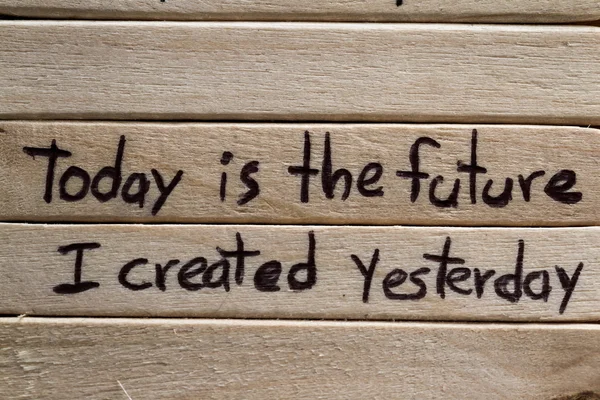 Today is the future
I created yesterday